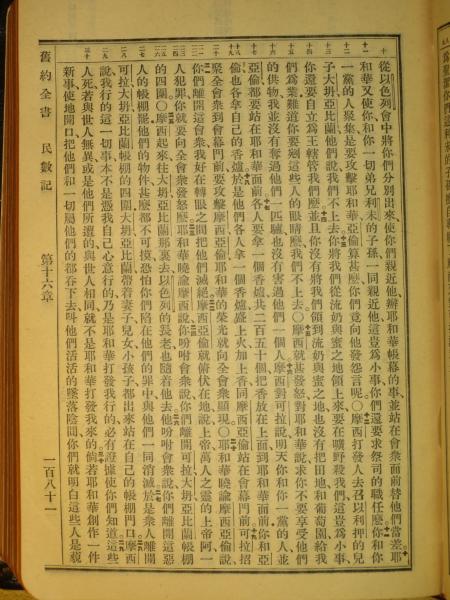 從以色列會中將你們分別出來、使你們親近他、辦耶和華帳幕的事、並站在會衆面前替他們當差、耶
和華又使你和你一切弟兄利未的子孫、一同親近他、這豈爲小事、你們還要求祭司的職任麼、你和你
一黨的人聚集、是要攻擊耶和華、亞倫算甚麼、你們竟向他發怨言呢○摩西打發人去召以利押的兒
子大坍亞比蘭、他們說、我們不上去、你將我們從流奶與蜜之地領上來、要在曠野殺我們、這豈爲小事
你還要自立爲王轄管我們麼、並且你沒有將我們領到流奶與蜜之地、也沒有把田地和葡萄園給我
們爲業、難道你要剜這些人的眼睛麼、我們不上去○摩西就甚發怒、對耶和華說、求你不要享受他們
的供物、我並沒有奪過他們一匹驢、也沒有害過他們一個人、摩西對可拉說、明天你和你一黨的人、並
亞倫都要站在耶和華面前、各人要拿一個香爐、共二百五十個、把香放在上面、到耶和華面前、你和亞
倫也各拿自己的香爐、於是他們各人拿一個香爐、盛上火、加上香、同摩西亞倫站在會幕門前、可拉招
聚全會衆到會幕門前、要攻擊摩西亞倫、耶和華的榮光就向全會衆顯現○耶和華曉諭摩西亞倫說、
你們離開這會衆、我好在轉眼之間把他們滅絕、摩西亞倫就俯伏在地說、上帝、萬人之靈的上帝阿、一
人犯罪、你就要向全會衆發怒麼、耶和華曉諭摩西說、你吩咐會衆說、你們離開可拉大坍亞比蘭帳棚
的四圍○摩西起來、往大坍亞比蘭那裏去、以色列的長老也隨着他去、他吩咐會衆說、你們離開這惡
人的帳棚罷、他們的物件甚麼都不可摸、恐怕你們陷在他們的罪中、與他們一同消滅、於是衆人離開
可拉大坍亞比蘭帳棚的四圍、大坍亞比蘭帶着妻子兒女小孩子都出來、站在自己的帳棚門口、摩西
說、我行的這一切事、本不是憑我自己心意行的、乃是耶和華打發我行的、必有證據使你們知道、這些
人死若與世人無異、或是他們所遭的與世人相同、就不是耶和華打發我來的、倘若耶和華創作一件
新事、使地開口、把他們和一切屬他們的都吞下去、叫他們活活的墜落陰間、你們就明白這些人是藐
舊約全書 民數記 第十六章 一百八十一